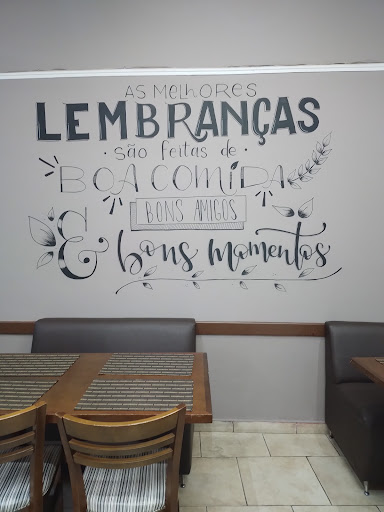 AS MELHORES
LEMBRANÇAS
• são feitas de •
BOA COMIDA
BONS AMIGOS
& bons momentos